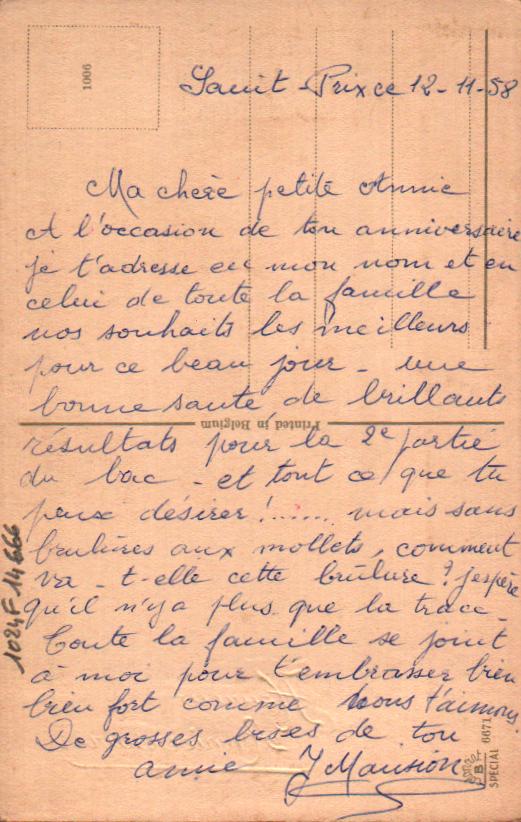 1006
Saint-Prix ce 12-11-58
Ma chère petite Annie
A l'occasion de ton anniversaire
je t'adresse en mon nom et en
celui de toute la famille
nos souhaits les meilleurs
pour ce beau jour - une
bonne santé de brillants
Printed in Belgium
résultats pour la 2e partie
du bac - et tout ce que tu
peux désirer !...... mais sans
brulûres aux mollets, comment
va-t-elle cette brûlure ? j'espère
qu'il n'y a plus que la trace -
Toute la famille se joint
à moi pour t'embrasser bien
bien fort comme nous t'aimons.
De grosses bises de ton
amie J Mansion
1024F 14 666
SPECIAL 6671
B